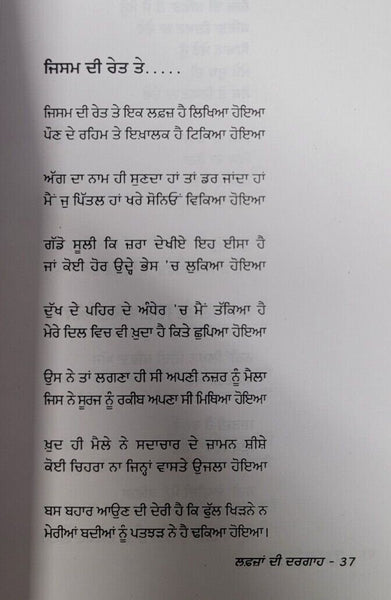 ਜਿਸਮ ਦੀ ਰੇਤ ਤੇ.....
ਜਿਸਮ ਦੀ ਰੇਤ ਤੇ ਇਕ ਲਫ਼ਜ਼ ਹੈ ਲਿਖਿਆ ਹੋਇਆ
ਪੌਣ ਦੇ ਰਹਿਮ ਤੇ ਇਖ਼ਾਲਕ ਹੈ ਟਿਕਿਆ ਹੋਇਆ
ਅੱਗ ਦਾ ਨਾਮ ਹੀ ਸੁਣਦਾ ਹਾਂ ਤਾਂ ਡਰ ਜਾਂਦਾ ਹਾਂ
ਮੈਂ ਜੁ ਪਿੱਤਲ ਹਾਂ ਖਰੇ ਸੋਨਿਓਂ ਵਿਕਿਆ ਹੋਇਆ
ਗੱਡੋ ਸੂਲੀ ਕਿ ਜ਼ਰਾ ਦੇਖੀਏ ਇਹ ਈਸਾ ਹੈ
ਜਾਂ ਕੋਈ ਹੋਰ ਉਦ੍ਹੇ ਭੇਸ 'ਚ ਲੁਕਿਆ ਹੋਇਆ
ਦੁੱਖ ਦੇ ਪਹਿਰ ਦੇ ਅੰਧੇਰ 'ਚ ਮੈਂ ਤੱਕਿਆ ਹੈ
ਮੇਰੇ ਦਿਲ ਵਿਚ ਵੀ ਖ਼ੁਦਾ ਹੈ ਕਿਤੇ ਛੁਪਿਆ ਹੋਇਆ
ਉਸ ਨੇ ਤਾਂ ਲਗਣਾ ਹੀ ਸੀ ਅਪਣੀ ਨਜ਼ਰ ਨੂੰ ਮੈਲਾ
ਜਿਸ ਨੇ ਸੂਰਜ ਨੂੰ ਰਕੀਬ ਅਪਣਾ ਸੀ ਮਿਥਿਆ ਹੋਇਆ
ਖ਼ੁਦ ਹੀ ਮੈਲੇ ਨੇ ਸਦਾਚਾਰ ਦੇ ਜ਼ਾਮਨ ਸ਼ੀਸ਼ੇ
ਕੋਈ ਚਿਹਰਾ ਨਾ ਜਿਨ੍ਹਾਂ ਵਾਸਤੇ ਉਜਲਾ ਹੋਇਆ
ਬਸ ਬਹਾਰ ਆਉਣ ਦੀ ਦੇਰੀ ਹੈ ਕਿ ਫੁੱਲ ਖਿੜਨੇ ਨ
ਮੇਰੀਆਂ ਬਦੀਆਂ ਨੂੰ ਪਤਝੜ ਨੇ ਹੈ ਢਕਿਆ ਹੋਇਆ।
ਲਫ਼ਜ਼ਾਂ ਦੀ ਦਰਗਾਹ - 37